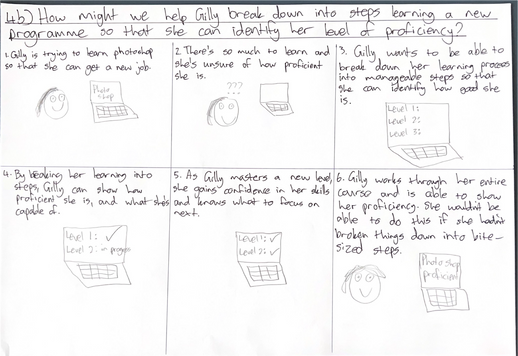 4b) How might we help Gilly break down into steps learning a new
programme so that she can identify her level of proficiency?
1. Gilly is trying to learn photoshop
so that she can get a new job.
Photo
shop
2. There's so much to learn and
she's unsure of how proficient
she is.
???
3. Gilly wants to be able to
break down her learning process
into manageable steps so that
she can identify how good she
is.
Level 1:
Level 2:
Level 3:
4. By breaking her learning into
steps, Gilly can show how
proficient she is, and what she's
capable of.
Level 1: ✓
Level 2: in progress
5. As Gilly masters a new level,
she gains confidence in her skills
and knows what to focus on
next.
Level 1: ✓
Level 2: ✓
6. Gilly works through her entire
course and is able to show
her proficiency. She wouldn't be
able to do this if she hadn't
broken things down into bite-
sized steps.
Photoshop
proficient